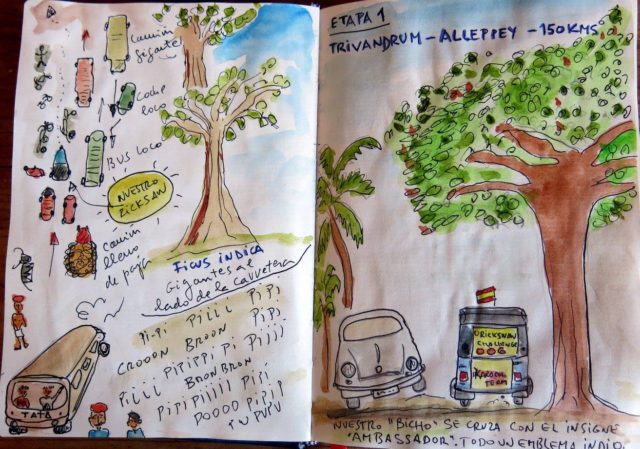 Camión
gigante
Coche
loco
BUS LOCO
NUESTRO
RICKSAW
Camión
lleno
de paja
FICUS INDICA
Gigantes al
lado de la carretera
Pi-Pi PiIII PiPi
CROOON BROON PiPi
PiIII PiPiPPi Pi PiIII
BRONBRON
PiPi PiIIII PiPi
DOOOO PiPiI
TATA
ETAPA 1
TRIVANDRUM - ALLEPPEY - 150 KMS
RICKSHAW
CHALLENGE
TEAM
NUESTRO "BICHO" SE CRUZA CON EL INSIGNE
"AMBASSADOR". TODO UN EMBLEMA INDIO.